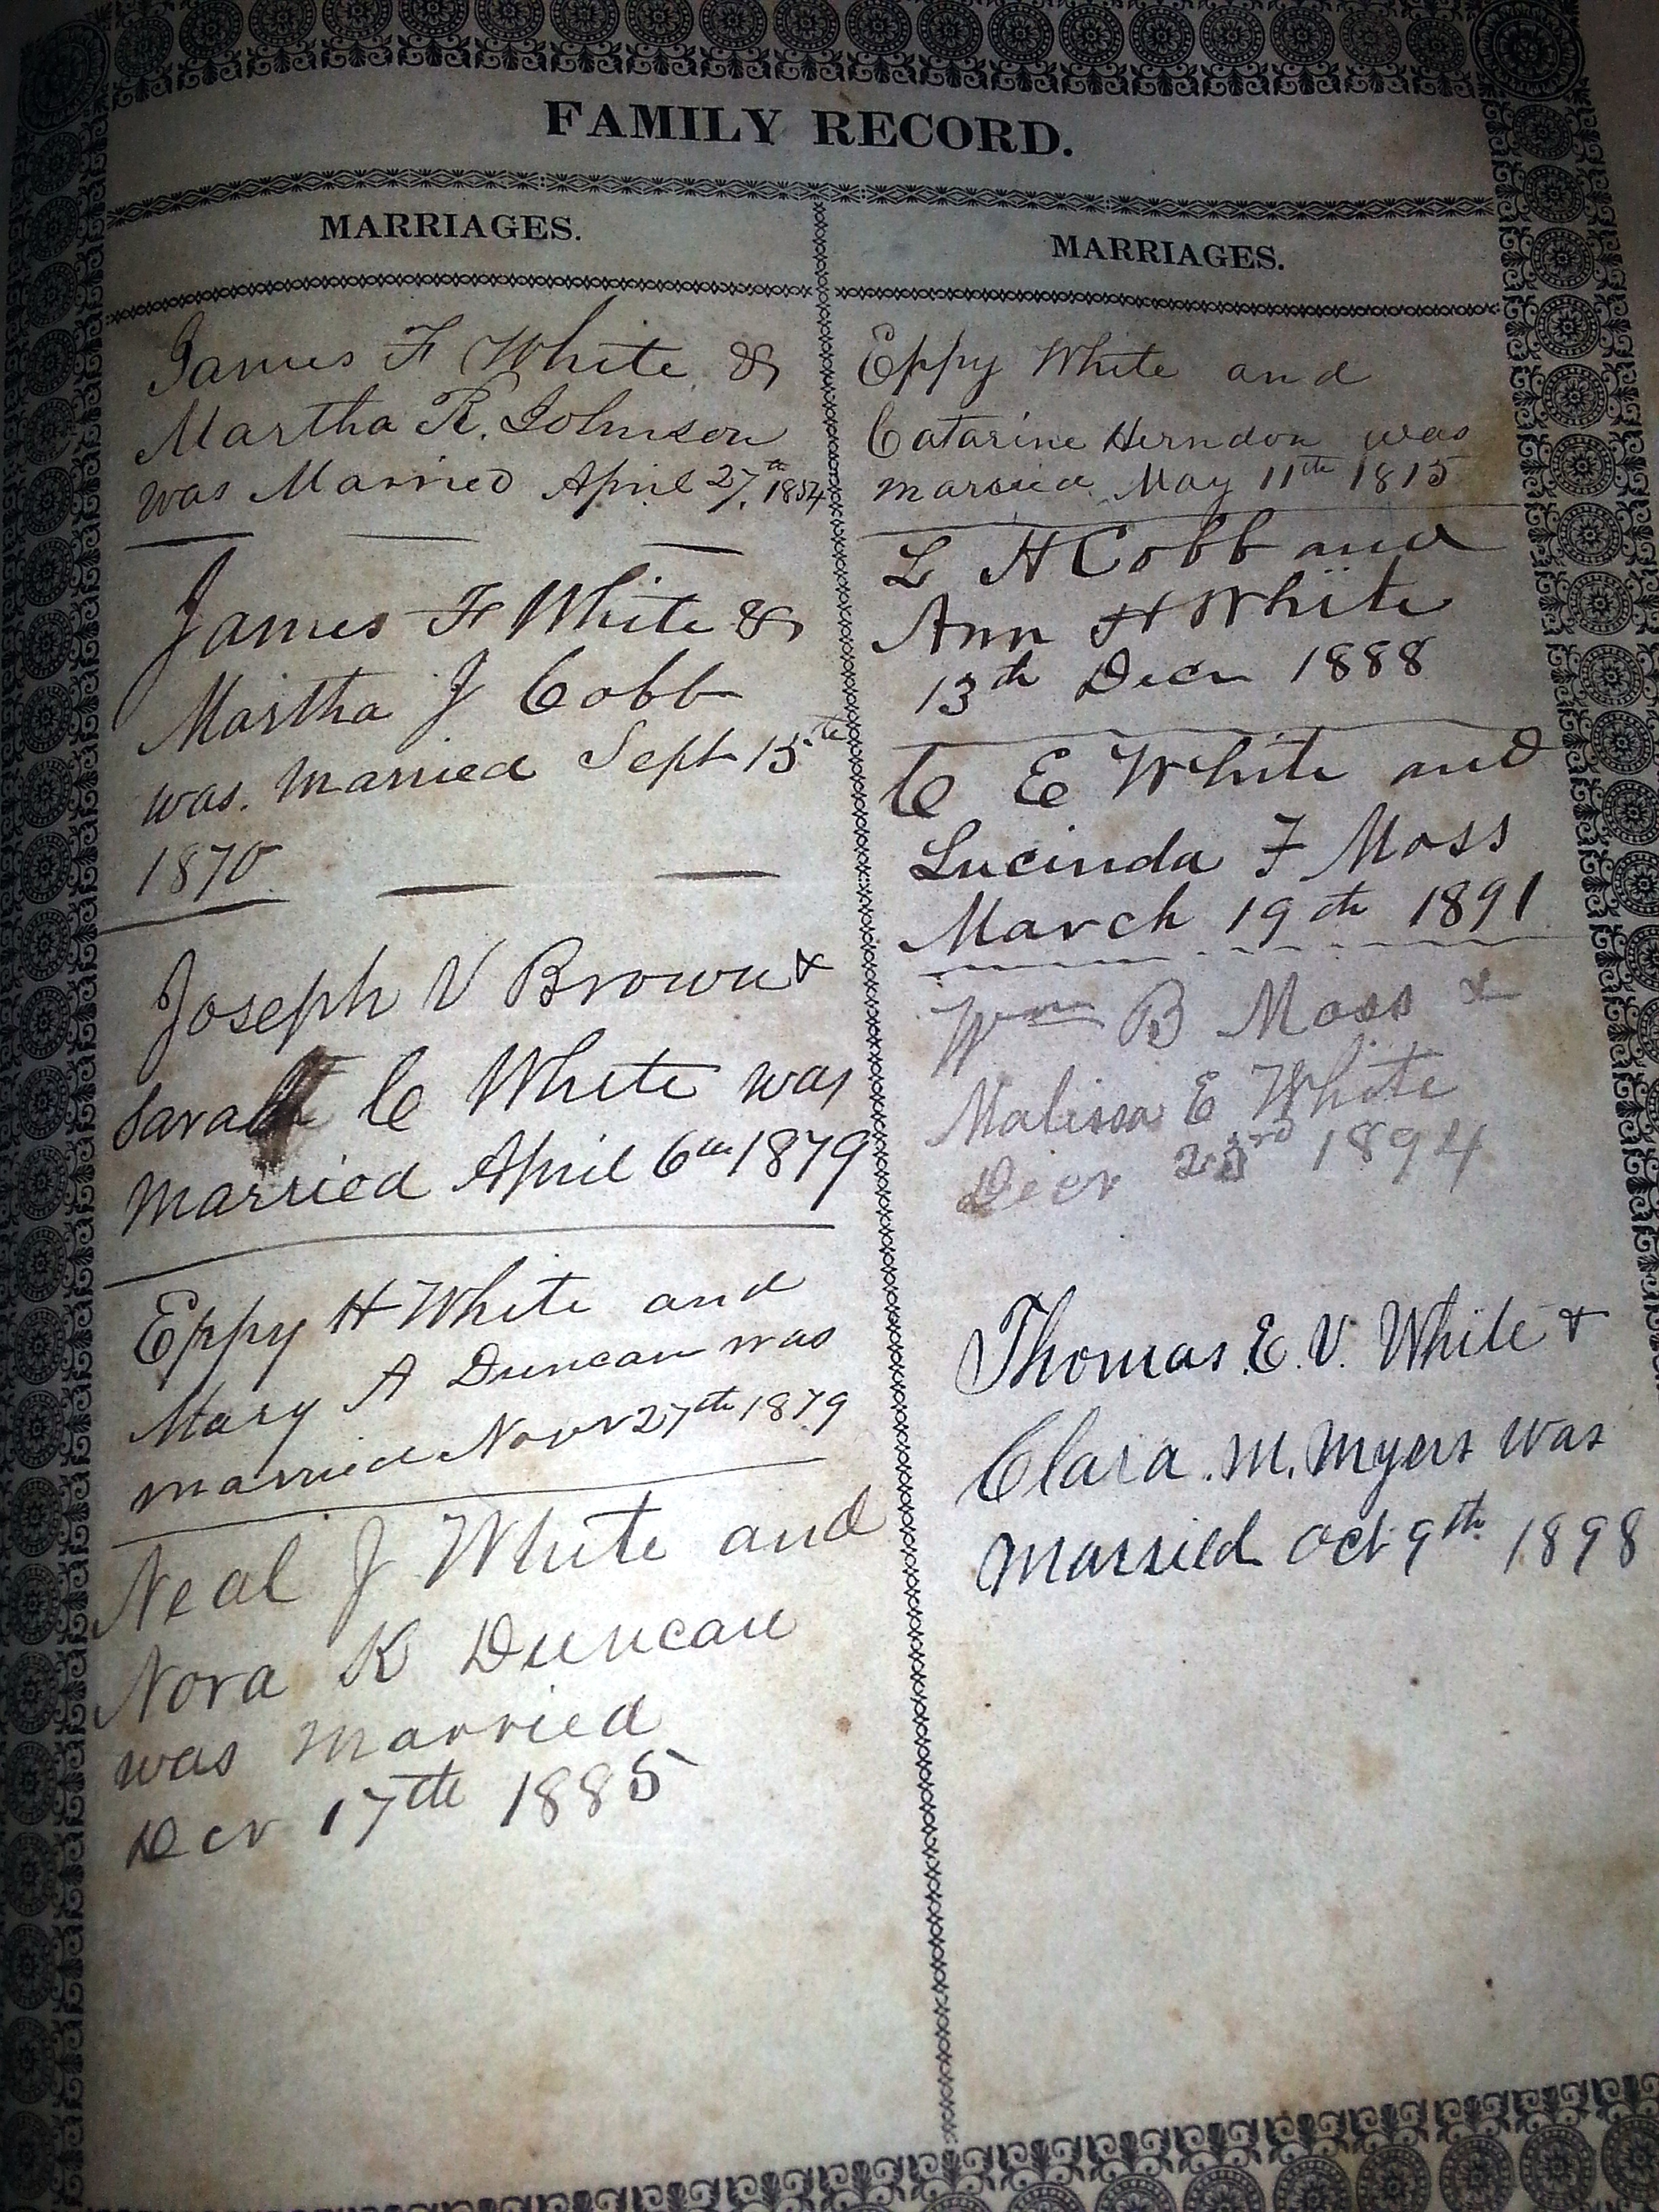 FAMILY RECORD.
MARRIAGES.
James F White &
Martha R. Johnson
was Married April 27th, 1854
James F White &
Martha J Cobb
was. Married Sept 15th
1870
Joseph V Brown &
Sarah C White was
Married April 6th 1879
Eppy H White and
Mary A Duncan was
married Novr 27th 1879
Neal J White and
Nora K Duncan
was Married
Decr 17th 1885
MARRIAGES.
Eppy White and
Catarine Herndon was
married May 11th 1815
L H Cobb and
Ann H White
13th Decr 1888
C E White and
Lucinda F Moss
March 19th 1891
Wm B Moss &
Malissa E White
Decr 23rd 1894
Thomas E. V. White &
Clara. M. Myers was
Married Oct 9th 1898